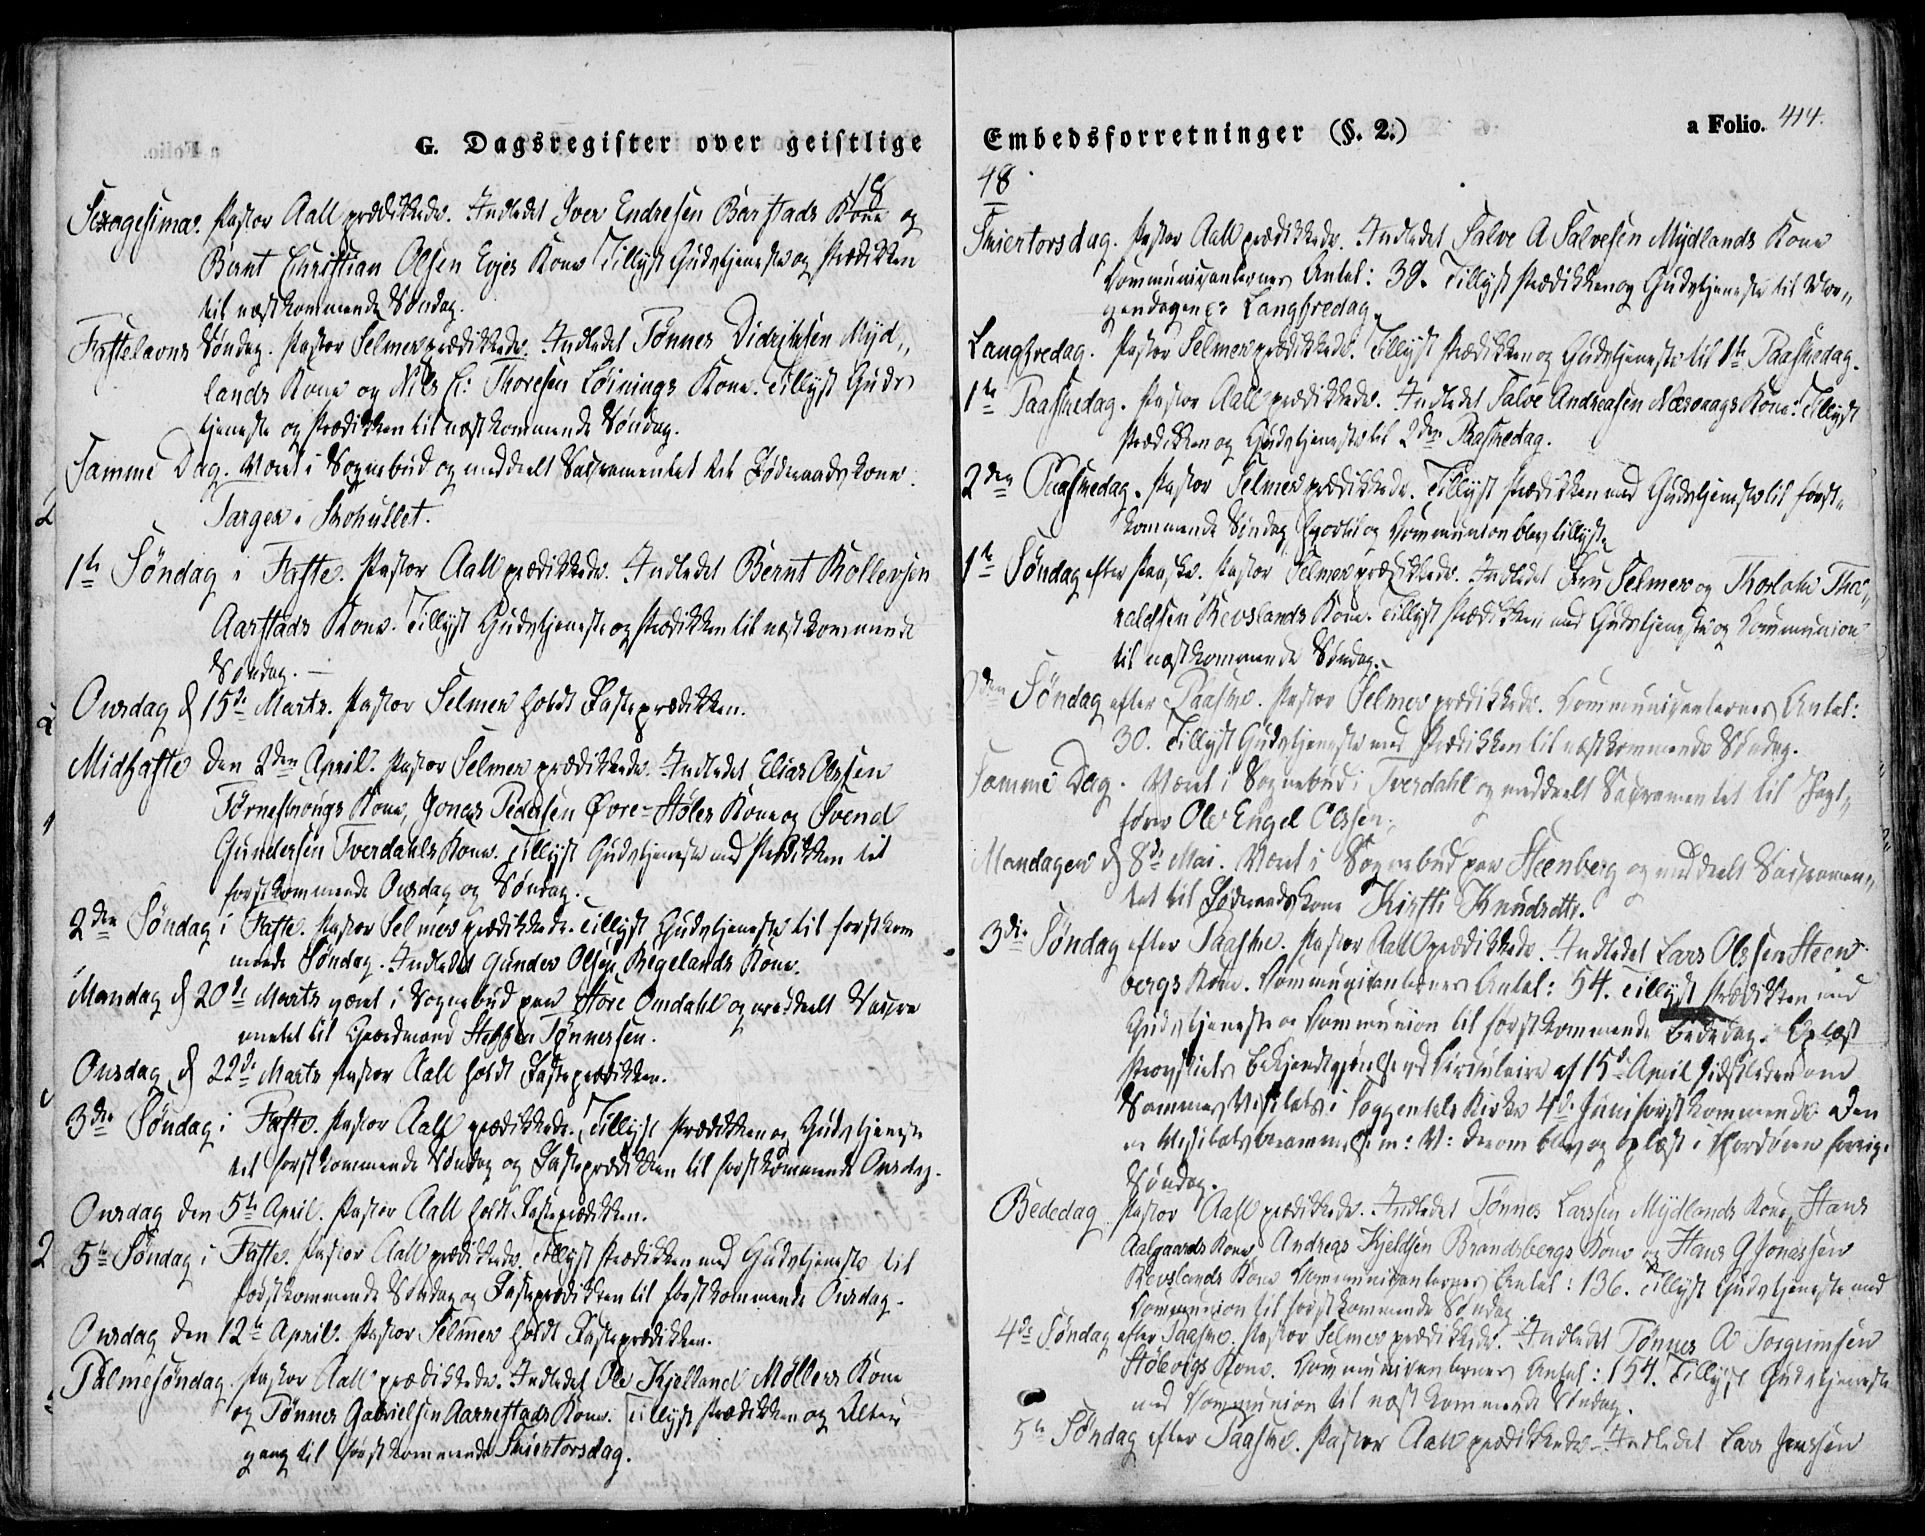 G. Dagsregister over geistlige
18
Sexagesima. Pastor Aall prædikede. Indledet Iver Endresen Barstads Kone og
Bernt Christian Olsen Evjes Kone Tillyst Gudstjeneste og Prædikken
til næstkommende Søndag.
Fastelavns Søndag. Pastor Selmer prædikkede. Indledet Tønnes Didriksen Myd„
lands Kone og Nils Thoresen Løinings Kone. Tillyst Guds
tjeneste og Prædikken til næstkommende Søndag.
Samme Dag. Været i Sognebud og meddeelt Sacramentet til Kone
Targer i Skohullet.
1te Søndag i Faste. Pastor Aall prædikkede. Indledet Bernt Rollevsen
Aarstads Kone. Tillyst Gudstjeneste og Prædikken til næstkommende
Søndag. —
Onsdag d 15de Marts. Pastor Selmer holdt Fasteprædikken.
Midfaste den 2den April. Pastor Selmer prædikkede. Indledet Elias Olssen
Kone, Jonas Pedersen Øvre-Støles Kone og Svend
Gundersen Tverdahls Kone. Tillyst Gudstjeneste med Prædikken til
førstkommende Onsdag og Søndag.
2den Søndag i Faste. Pastor Selmer prædikkede. Tillyst Gudstjeneste til førstkom
mende Søndag. Indledet Gunder Olsen Regelands Kone.
Mandag d 20de Marts været i Sognebud paa Store Omdahl og meddeelt Sacra
mentet til Gaardmand Steffen Tønnessen.
Onsdag d 22de Marts Pastor Aall holdt Fasteprædikken.
3die Søndag i Faste. Pastor Aall prædikkede. Tillyst Prædikken og Gudstjeneste
til førstkommende Søndag og Fasteprædikken til førstkommende Onsdag.
Onsdag den 5te April. Pastor Aall holdt Fasteprædikken.
5te Søndag i Faste. Pastor Aall prædikkede. Tillyst Prædikken med Gudstjeneste til
førstkommende Søndag og Fasteprædikken til førstkommende Onsdag.
Onsdag den 12te April. Pastor Selmer holdt Fasteprædikken.
Palmesøndag. Pastor Aall prædikkede. Indledet Ole Kjelland Møllers Kone
og Tønnes Gabrielsen Aarrestads Kone. Tillyst Prædikken og Alter
gang til førstkommende Skiertorsdag.
Embedsforretninger (§. 2.) a Folio. 414.
48
Skiertorsdag. Pastor Aall prædikkede. Indledet Salve A Salvesen Mydlands Kone
Communicanternes Antal: 39. Tillyst Prædikken og Gudstjeneste til Mor„
gendagen: Langfredag.
Langfredag. Pastor Selmer prædikkede. Tillyst Prædikken og Gudstjeneste til 1te Paaskedag.
1te Paaskedag. Pastor Aall prædikkede. Indledet Salve Andreasen Kone. Tillyst
Prædikken og Gudstjeneste til 2den Paaskedag.
2den Paaskedag. Pastor Selmer prædikkede. Tillyst Prædikken med Gudstjeneste til først„
kommende Søndag og Communion blev tillyst.
1te Søndag efter Paaske. Pastor Selmer prædikkede. Indledet Fru Selmer og Thorlak Tho„
raldsen Refslands Kone. Tillyst Prædikken med Gudstjeneste og Communion
til næstkommende Søndag.
2den Søndag efter Paaske. Pastor Selmer prædikkede. Communicanternes Antal:
30. Tillyst Gudstjeneste med Prædikken til næstkommende Søndag.
Samme Dag. Været i Sognebud i Tverdahl og meddeelt Sacramentet til
Ole Engel Olssen.
Mandagen d 8de Mai. Været i Sognebud paa Steenberg og meddeelt Sacramen„
tet til Kirsti Knudsdtr.
3die Søndag efter Paaske. Pastor Aall prædikkede. Indledet Lars Olssen Steen
bergs Kone. Communicanternes Antal: 54. Tillyst Prædikken med
Gudstjeneste og Communion til førstkommende Bededag. Oplæst
Provstiets Bekjendtgjørelse ved Circulaire af 15de April sidstleden om
Sommer Visitats i Soggendals Kirke 4de Juni førstkommende. Den
Visitatsberammelse m: V: derom blev og oplæst i forrige
Søndag.
Bededag. Pastor Aall prædikkede. Indledet Tønnes Larssen Mydlands Kone, Hans
Aalgaards Kone, Andreas Kjeldsen Brandsbergs Kone og Hans G Jonassen
Refslands Kone Communicanternes Antal: 136. Tillyst Gudstjeneste med
Communion til førstkommende Søndag.
4de Søndag efter Paaske. Pastor Selmer prædikkede. Indledet Tønnes A Torgrimsen
Stølevigs Kone. Communicanternes Antal: 154. Tillyst Gudstjeneste
med Communion til næstkommende Søndag.
5te Søndag efter Paaske. Pastor Aall prædikkede. Indledet Lars Jenssen